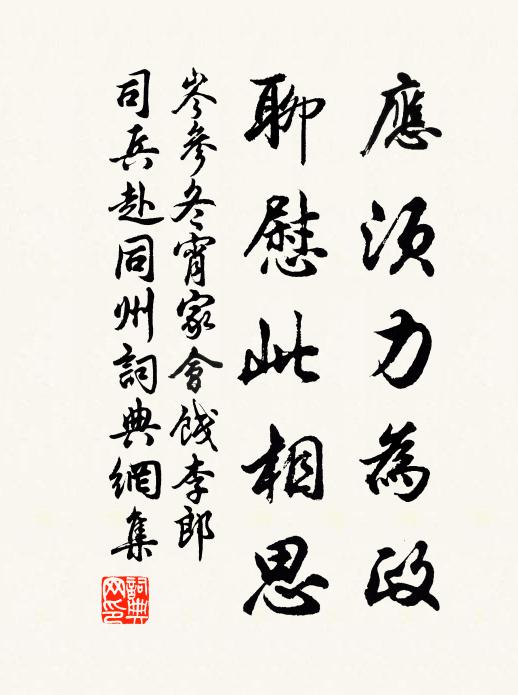 應須力為政
聊慰此相思
岑參冬宵家會餞李郎
司兵赴同州詞典網集
詞典
网印